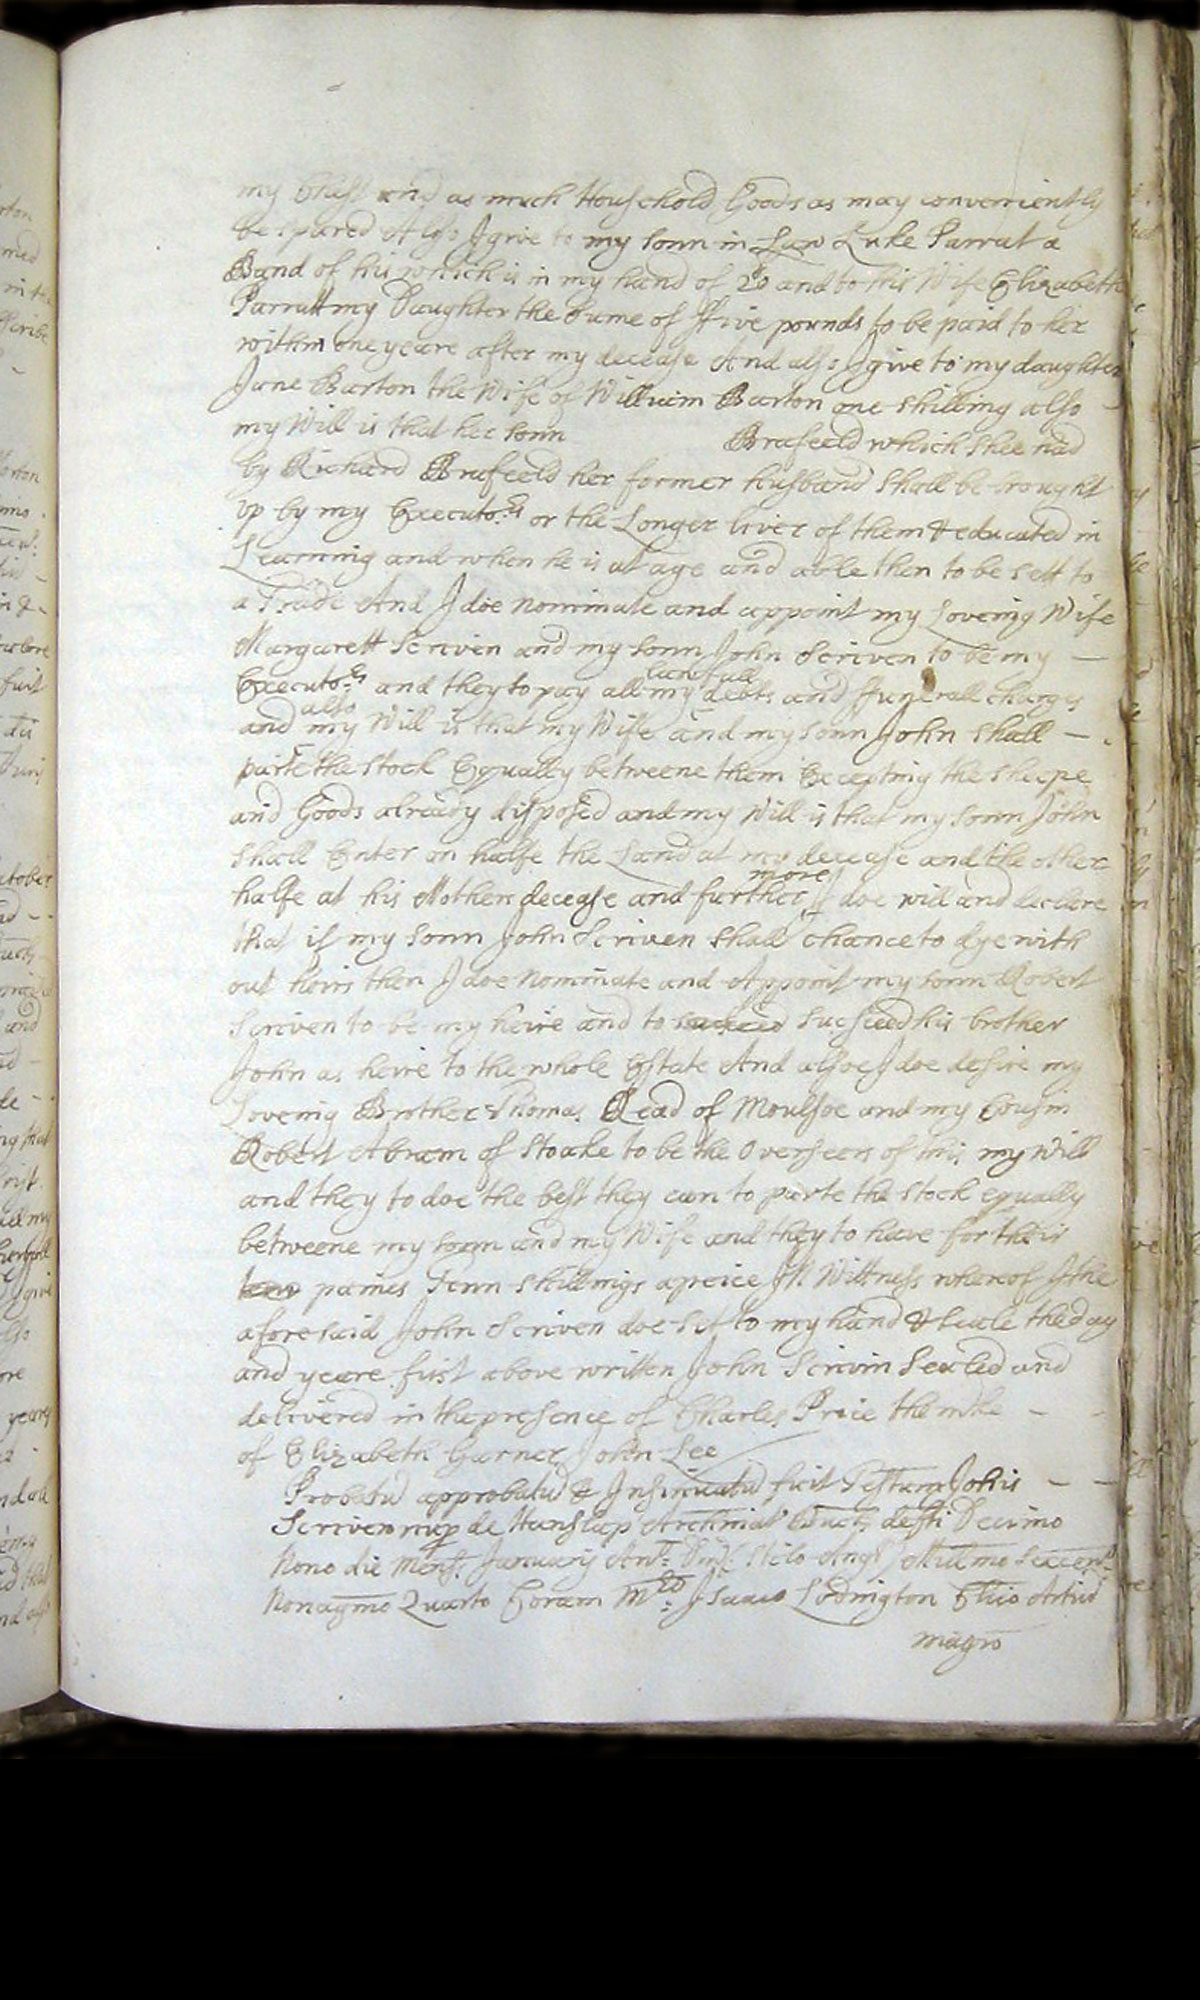 my Chest and as much Household Goods as may conveniently
be spared Also I give to my sonn in Law Luke Parrat a
Band of his which is in my hand of 20 and to his Wife Elizabeth
Parratt my Daughter the Sume of ffive pounds to be paid to her
within one yeare after my decease And also I give to my daughter
Jane Barton the Wife of William Barton one shilling also -
my Will is that her sonn Brafeeld which shee had
by Richard Brafeeld her former husband shall be brought
up by my Executors or the Longer liver of them & educated in
Learning and when he is at age and able then to be sett to
a Trade And I doe nominate and appoint my Loveing Wife
Margarett Scriven and my sonn John Scriven to be my —
lawfull
Executors and they to pay all my debts and ffunerall charges
also
and my Will is that my Wife and my sonn John shall — .
parte the stock Equally betweene them Excepting the sheepe
and Goods already disposed and my Will is that my sonn John
shall Enter on halfe the Land at my decease and the other
more
halfe at his Mothers decease and further I doe will and declare
that if my sonn John Scriven shall chance to dye with
out heirs then I doe nominate and Appoint my sonn Robert
Scriven to be my heire and to succeed sucseed his brother
John as heire to the whole Estate And alsoe I doe desire my
Loveing Brother Thomas Read of Moulsoe and my Cousin
Robert Abram of Stoake to be the Overseers of this my Will
and they to doe the best they can to parte the stock equally
betweene my sonn and my Wife and they to have for their
paines Tenn shillings apeice In Wittness whereof I the
aforesaid John Scriven doe set to my hand & seale the day
and yeare first above written John Scrivin Sealed and
delivered in the presence of Charles Price the mke - -
of Elizabeth Garner John Lee
Probatu approbatu & Insinuatu fuit Testum Johis — —
Scriven nup de Hanslap Archinat Buck defti Decimo
Nono die Mens. Januarij Ano. Dni. Stilo Angl Millmo Sexcen
Nonagmo Quarto Coram Mro Isaaco Lodington Clico Artiu
magro